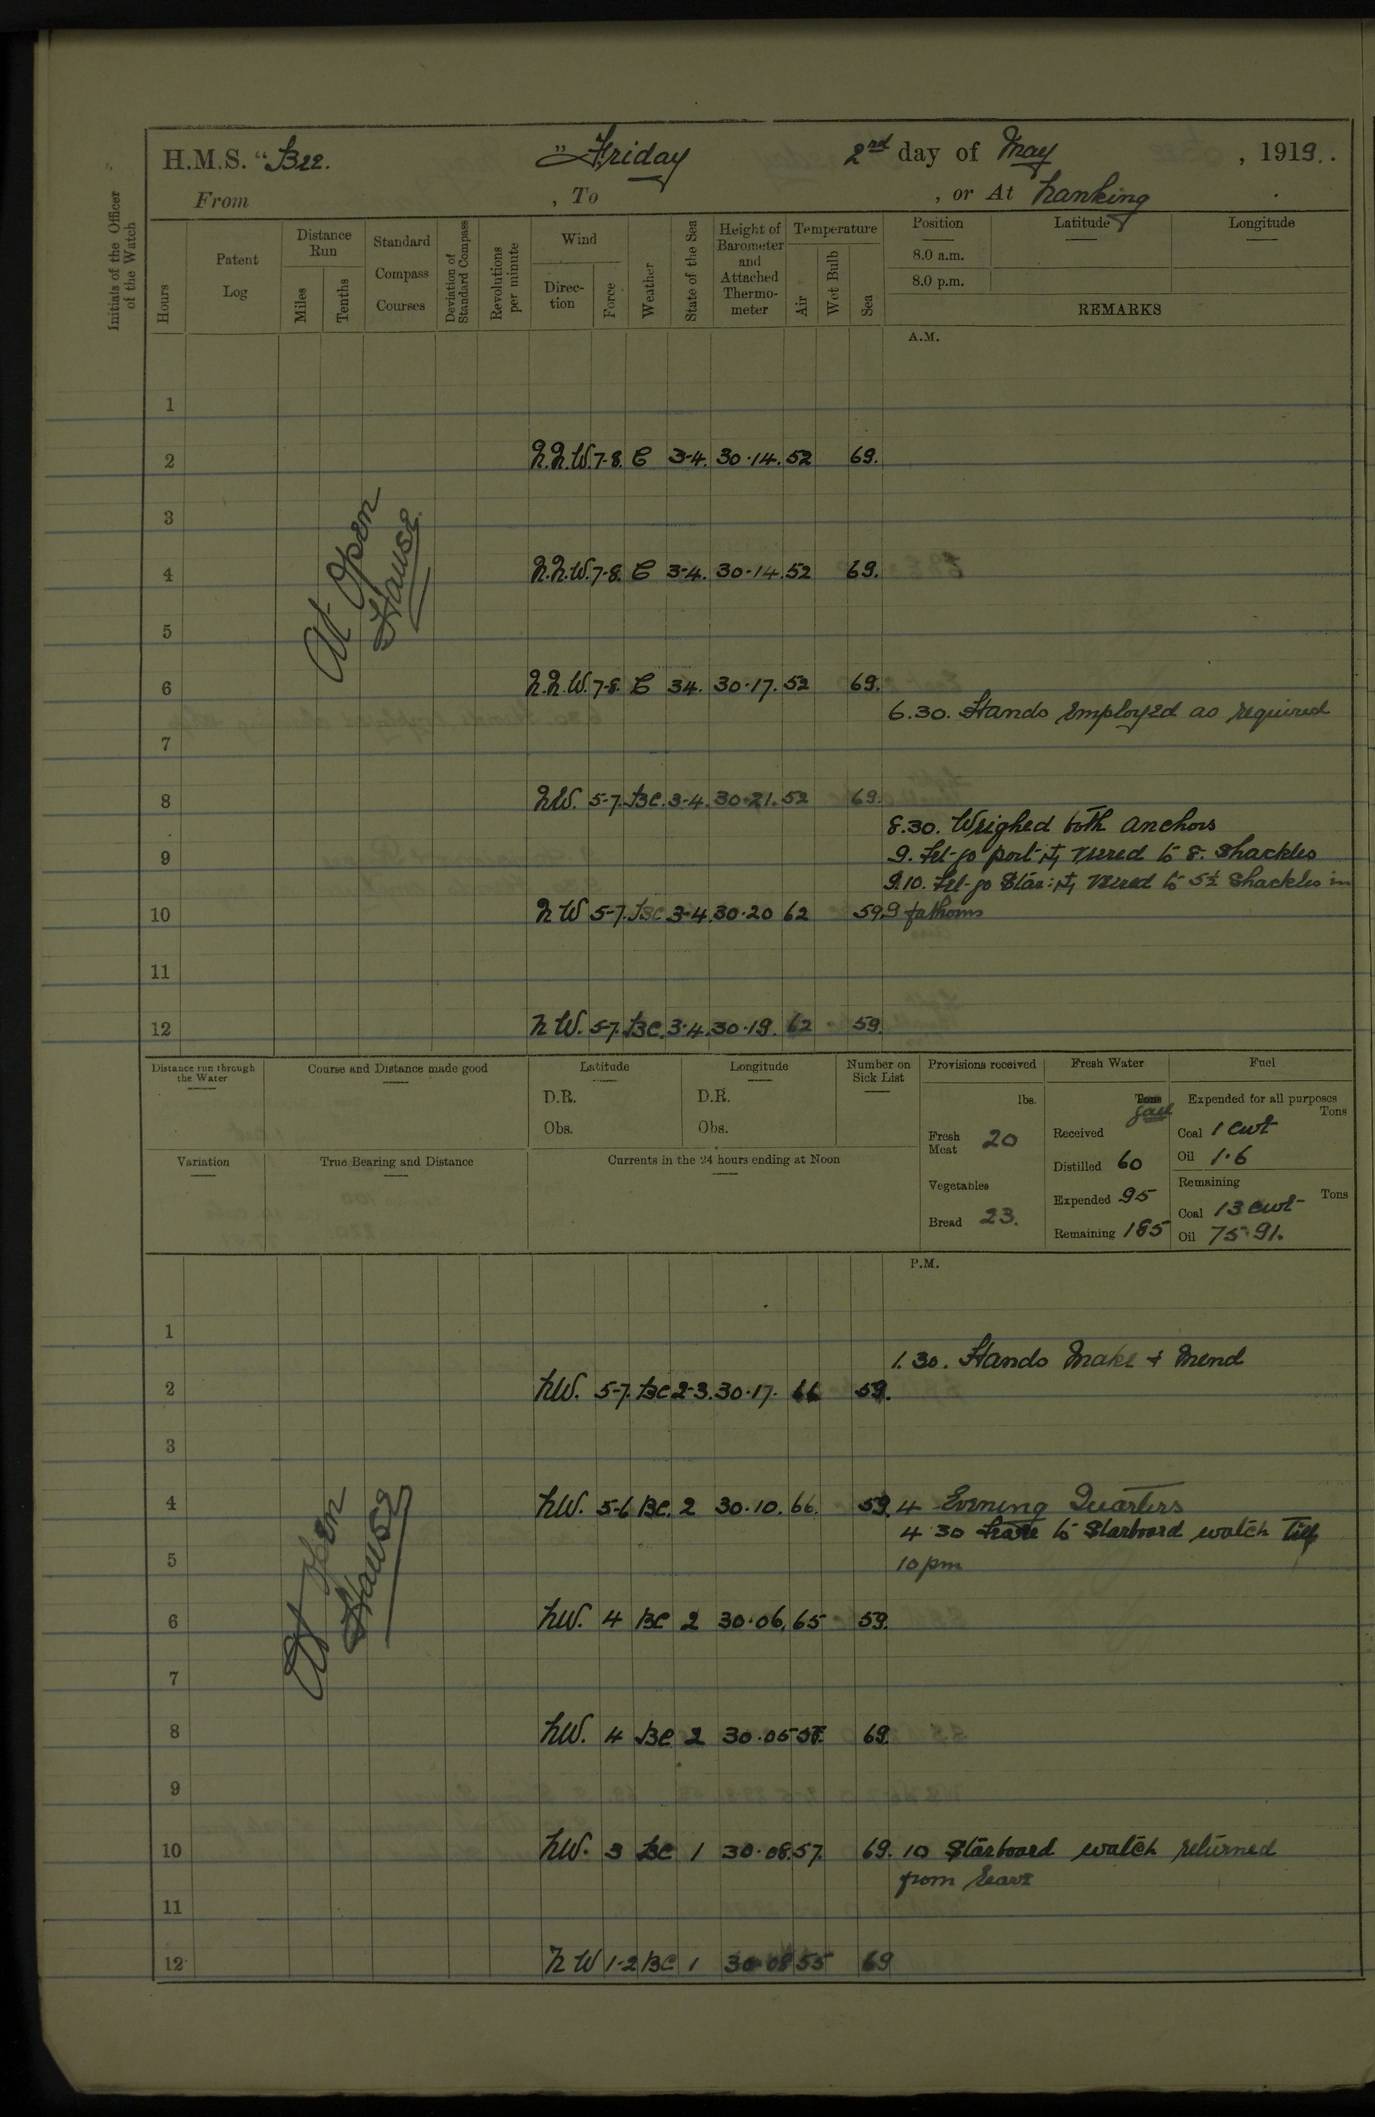 H.M.S. "Bee. " Friday 2nd day of May , 1919.
From , To , or At Nanking
Initials of the Officer of the Watch
Hours Patent Log Distance Run Miles Tenths Standard Compass Courses Deviation of Standard Compass Revolutions per minute Wind Direction Force Weather State of the Sea Height of Barometer and Attached Thermometer Temperature Air Wet Bulb Sea Position Latitude Longitude
8.0 a.m.
8.0 p.m.
REMARKS
A.M.
1
2 N.N.W. 7-8. C 3-4. 30.14. 52 69.
3
At Open Hawse.
4 N.N.W. 7-8. C 3-4. 30.14. 52 69.
5
6 N.N.W. 7-8. C 34. 30.17. 52 69.
6.30. Hands employed as required
7
8 NW. 5-7. BC. 3-4. 30.21. 52 69.
8.30. Weighed both anchors
9 9. Let-go port &, veered to 8. Shackles
9.10. Let-go Star: &, veered to 5½ Shackles in
10 NW 5-7. BC 3-4. 30.20 62 59. 9 fathoms
11
12 NW. 5-7. BC. 3.4. 30.19. 62 59.
Distance run through the Water Course and Distance made good Latitude Longitude Number on Sick List Provisions received Fresh Water Fuel
D.R. D.R. lbs. Tons gall Expended for all purposes Tons
Obs. Obs. Fresh Meat 20 Received Coal 1 cwt
Distilled 60 Oil 1.6
Variation True Bearing and Distance Currents in the 24 hours ending at Noon Vegetables Expended 95 Remaining Tons
Coal 13 cwt
Bread 23. Remaining 185 Oil 75.91.
P.M.
1
1.30. Hands Make + Mend
2 NW. 5-7. BC 2-3. 30.17. 66 59.
3
4 NW. 5-6 BC. 2 30.10. 66. 59. 4 Evening Quarters
4 30 Leave to Starboard watch till
5 10 pm
At Open Hawse
6 NW. 4 BC 2 30.06. 65 59.
7
8 NW. 4 BC 2 30.05 58. 69.
9
10 NW. 3 BC 1 30.08. 57. 69. 10 Starboard watch returned
from leave
11
12 NW 1-2 BC 1 30.08 55 69